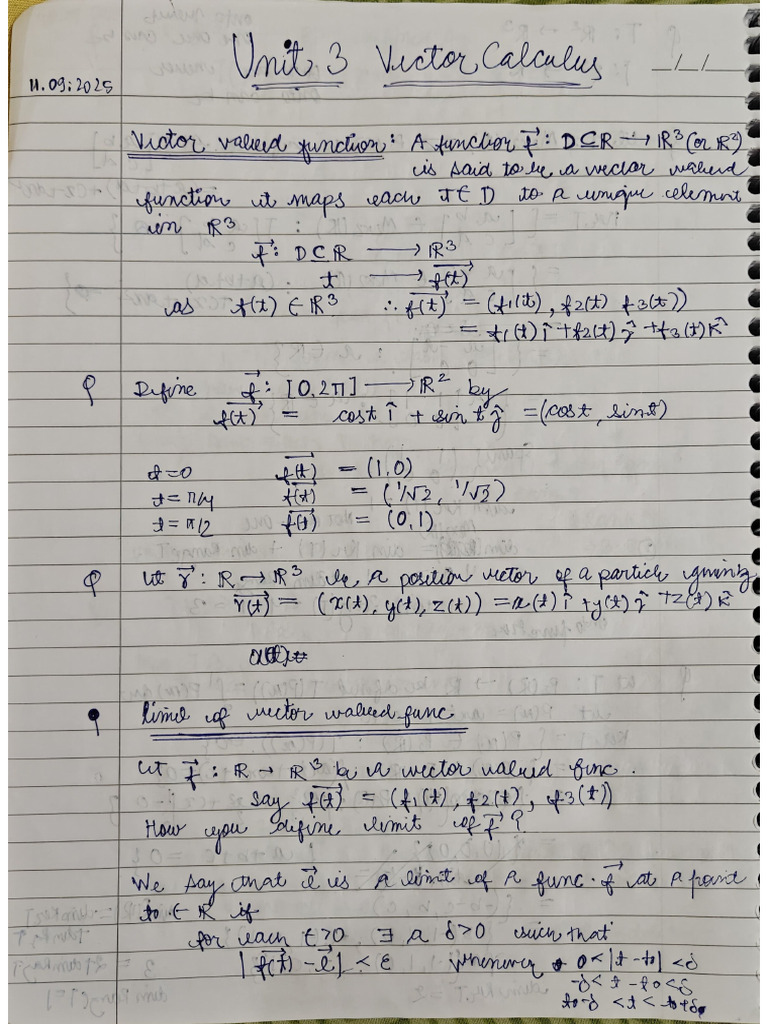 Unit 3 Vector Calculus
11.09.2025
Vector valued function: A function f⃗ : D⊆R → R³ (or R²)
is said to be a vector valued
function it maps each t ∈ D to a unique element
in R³
f⃗ : D⊆R → R³
t → f⃗(t)
as f(t) ∈ R³ ∴ f⃗(t) = (f1(t), f2(t) f3(t))
= f1(t) î + f2(t) ĵ + f3(t) k̂
Q Define f⃗ : [0,2π] → R² by
f⃗(t) = cost î + sin t ĵ = (cost, sint)
t=0 f⃗(t) = (1,0)
t = π/4 f⃗(t) = (1/√2, 1/√2)
t = π/2 f⃗(t) = (0,1)
Q let r⃗ : R → R³ be a position vector of a particle given by
r⃗(t) = (x(t), y(t), z(t)) = x(t) î + y(t) ĵ + z(t) k̂
limit of vector valued func
let f⃗ : R → R³ be a vector valued func.
say f⃗(t) = (f1(t), f2(t), f3(t))
How you define limit of f⃗ ?
We say that l⃗ is a limit of a func. f⃗ at a point
to ∈ R if
for each ε>0 ∃ a δ>0 such that
|f⃗(t) - l⃗| < ε whenever 0<|t-to|<δ
-δ< t - to <δ
to-δ < t < to+δ